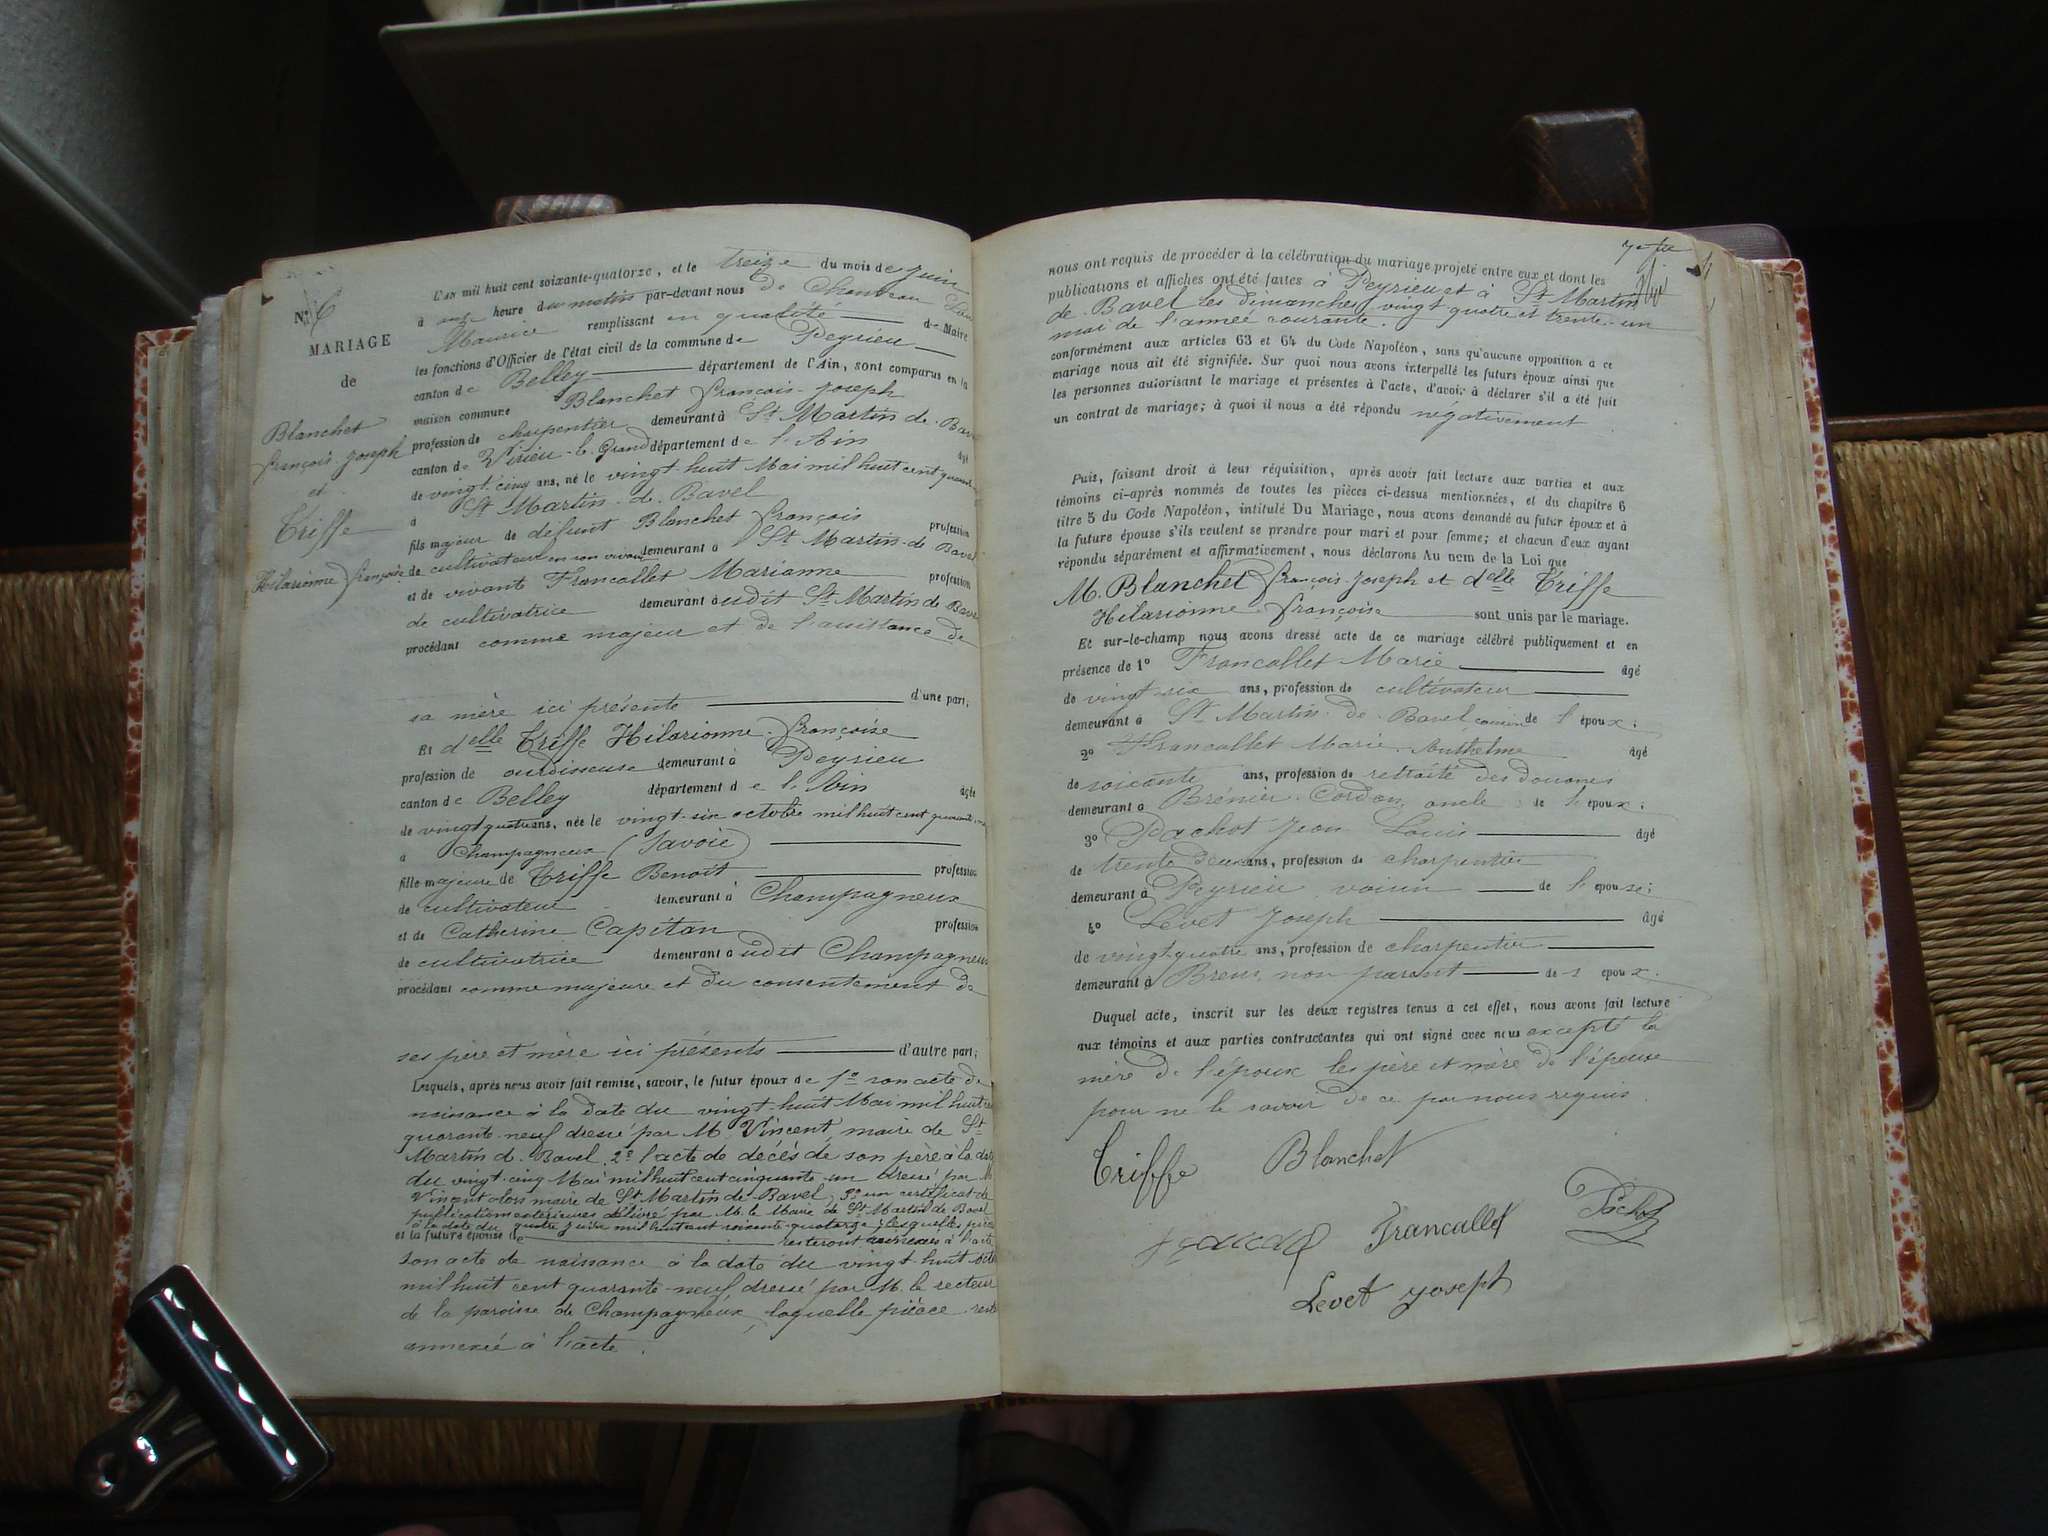 N° 6
MARIAGE
de
Blanchet
françois joseph
et
Triffe
Hilarionne françoise
L'an mil huit cent soixante-quatorze, et le treize du mois de Juin
à onze heure du matin par-devant nous de Chanteau
Maurice remplissant en qualité de Maire
les fonctions d'Officier de l'état civil de la commune de Peyrieu
canton de Belley département de l'Ain, sont comparus en la
maison commune Blanchet françois-joseph
profession de charpentier demeurant à St Martin de Bav
canton de Virieu-le-Grand département de l'Ain âgé
de vingt-cinq ans, né le vingt-huit Mai mil huit cent quarante
à St Martin-de-Bavel
fils majeur de défunt Blanchet françois profession
de cultivateur en son vivant demeurant à St Martin-de Bavel
et de vivante Francallet Marianne profession
de cultivatrice demeurant à udit St Martin de Bavel
procédant comme majeur et de l'assistance de
sa mère ici présente d'une part;
Et delle Triffe Hilarionne-françoise
profession de ourdisseuse demeurant à Peyrieu
canton de Belley département de l'Ain âgée
de vingt quatre ans, née le vingt-six octobre mil huit cent quarante
à Champagneux (Savoie)
fille majeure de Triffe Benoît profession
de cultivateur demeurant à Champagneux
et de Catherine Capitan profession
de cultivatrice demeurant à udit Champagneux
procédant comme majeure et du consentement de
ses père et mère ici présents d'autre part;
Lesquels, après nous avoir fait remise, savoir, le futur époux de 1° son acte de
naissance à la date du vingt-huit Mai mil huit ce
quarante-neuf dressé par M. Vincent, maire de St
Martin d. Bavel, 2° l'acte de décès de son père à la da
du vingt-cinq Mai mil huit cent cinquante-un dressé par M
Vincent alors maire de St Martin de Bavel, 3° un certificat de
publications extérieures délivré par M. le Maire de St Martin de Bavel
à la date du quatre Juin mil huit cent soixante-quatorze lesquelles pièces
et la future épouse de resteront annexées à l'acte
son acte de naissance à la date du vingt-huit octo
mil huit cent quarante-neuf, dressé par M. le recteur
de la paroisse de Champagneux, laquelle pièce reste
annexée à l'acte.
nous ont requis de procéder à la célébration du mariage projeté entre eux et dont les
publications et affiches ont été faites à Peyrieu et à St Martin
de-Bavel les dimanches vingt quatre et trente-un
mai de l'année courante.
conformément aux articles 63 et 64 du Code Napoléon, sans qu'aucune opposition à ce
mariage nous ait été signifiée. Sur quoi nous avons interpellé les futurs époux ainsi que
les personnes autorisant le mariage et présentes à l'acte, d'avoir à déclarer s'il a été fait
un contrat de mariage; à quoi il nous a été répondu négativement
Puis, faisant droit à leur réquisition, après avoir fait lecture aux parties et aux
témoins ci-après nommés de toutes les pièces ci-dessus mentionnées, et du chapitre 6
titre 5 du Code Napoléon, intitulé Du Mariage, nous avons demandé au futur époux et à
la future épouse s'ils veulent se prendre pour mari et pour femme; et chacun d'eux ayant
répondu séparément et affirmativement, nous déclarons Au nom de la Loi que
M. Blanchet françois-Joseph et delle Triffe
Hilarionne-françoise sont unis par le mariage.
Et sur-le-champ nous avons dressé acte de ce mariage célébré publiquement et en
présence de 1° Francallet Marie âgé
de vingt-six ans, profession de cultivateur
demeurant à St Martin-de-Bavel cousin de l'époux;
2° Francallet Marie-Anthelme âgé
de soixante ans, profession de retraité des douanes
demeurant à Brénier-Cordon, oncle de l'époux;
3° Pachot Jean Louis âgé
de trente deux ans, profession de charpentier
demeurant à Peyrieu voisin de l'epouse;
4° Levet Joseph âgé
de vingt-quatre ans, profession de charpentier
demeurant à Brens, non parent de l epoux.
Duquel acte, inscrit sur les deux registres tenus à cet effet, nous avons fait lecture
aux témoins et aux parties contractantes qui ont signé avec nous excepté la
mère de l'époux les père et mère de l'épouse
pour ne le savoir de ce par nous requis.
Triffe Blanchet
Francallet Pachot
Levet Joseph